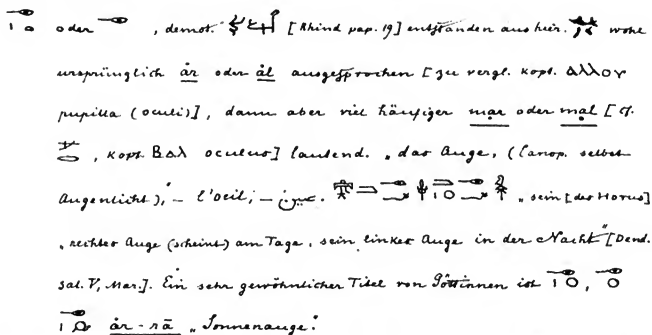 oder , demot. [Rhind pap. 19] entstanden aus hier. wohl
ursprünglich år oder ål ausgesprochen [zu vergl. kopt. ⲁⲗⲗⲟⲩ
pupilla (oculi)], dann aber viel häufiger mar oder mal [cf.
, kopt. ⲃⲁⲗ oculus] lautend. „das Auge, (Canop. selbst
Augenlicht),“ – l'oeil; – عين. „sein [des Horus]
„rechtes Auge (scheint) am Tage, sein linkes Auge in der Nacht“ [Dend.
sal. V, Mar.]. Ein sehr gewöhnlicher Titel von Göttinnen ist ,
år-rā „Sonnenauge.“